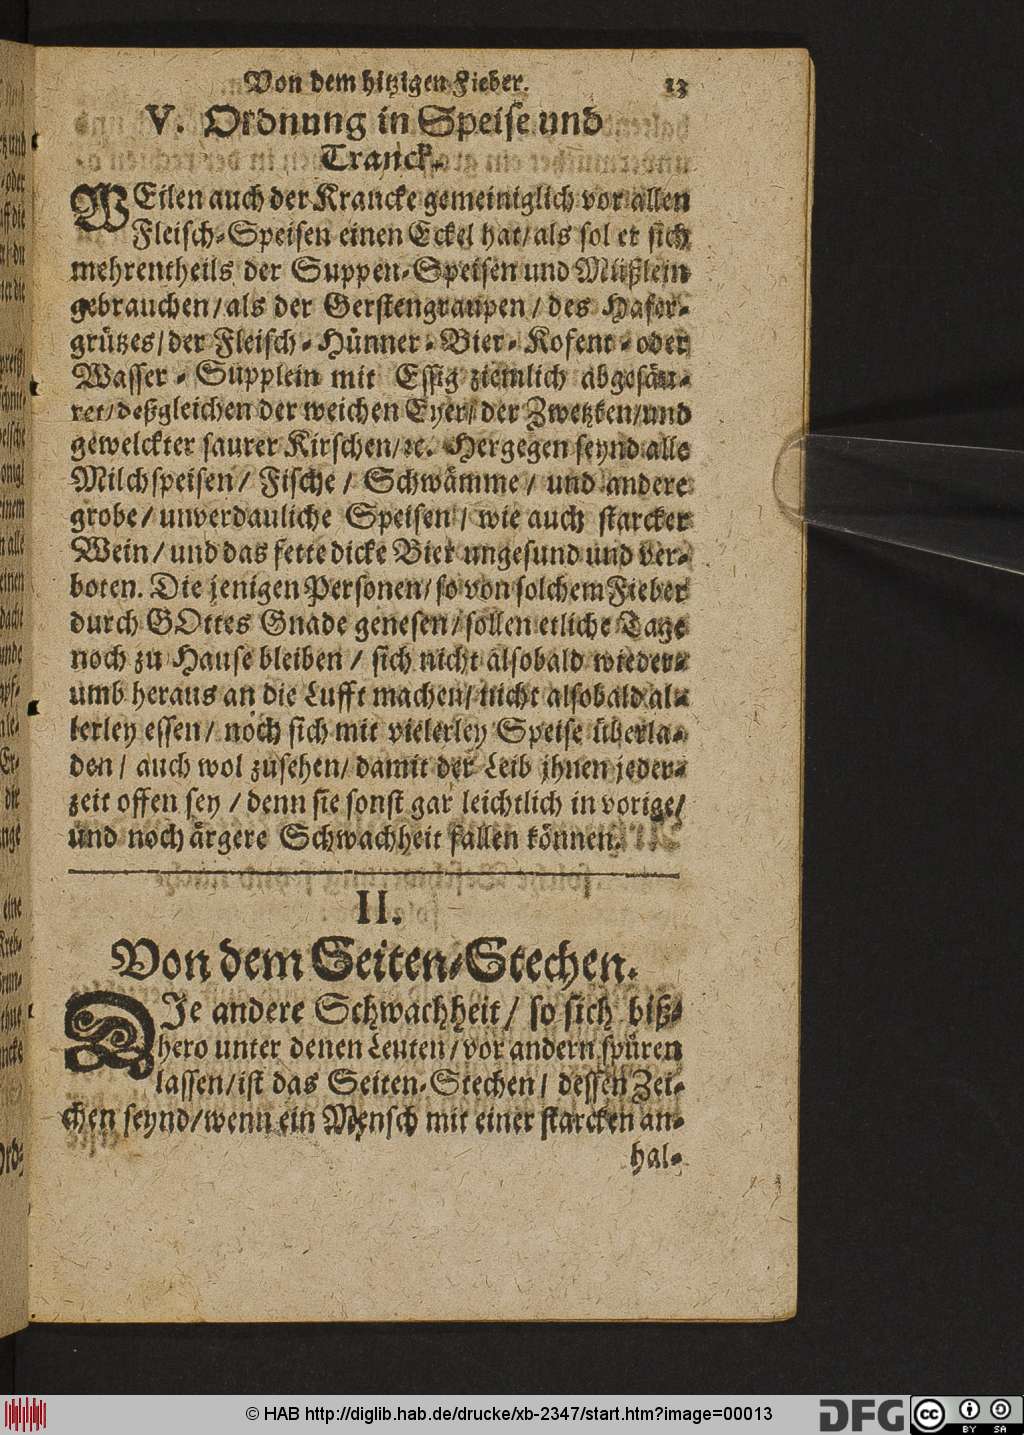 Von dem hitzigen Fieber. 13
V. Ordnung in Speise und
Tranck.
WEilen auch der Krancke gemeiniglich vor allen
Fleisch-Speisen einen Eckel hat/ als sol er sich
mehrentheils der Suppen-Speisen und Müßlein
gebrauchen/ als der Gerstengraupen/ des Hafer-
grützes/ der Fleisch-Hünner-Bier-Kofent-oder
Wasser-Supplein mit Essig ziemlich abgesäu-
ret/ deßgleichen der weichen Eyer/ der Zwetzken/ und
gewelckter saurer Kirschen/ ꝛc. Hergegen seynd alle
Milchspeisen/ Fische/ Schwämme/ und andere
grobe/ unverdauliche Speisen/ wie auch starcker
Wein/ und das fette dicke Bier ungesund und ver-
boten. Die jenigen Personen/ so von solchem Fieber
durch GOttes Gnade genesen/ sollen etliche Tage
noch zu Hause bleiben/ sich nicht alsobald wieder-
umb heraus an die Lufft machen/ nicht alsobald al-
lerley essen/ noch sich mit vielerley Speise überla-
den/ auch wol zusehen/ damit der Leib jhnen jeder-
zeit offen sey/ denn sie sonst gar leichtlich in vorige/
und noch ärgere Schwachheit fallen können.
II.
Von dem Seiten-Stechen.
DJe andere Schwachheit/ so sich biß-
hero unter denen Leuten/ vor andern spüren
lassen/ ist das Seiten-Stechen/ dessen Zei-
chen seynd/ wenn ein Mensch mit einer starcken an-
hal-
© HAB http://diglib.hab.de/drucke/xb-2347/start.htm?image=00013
DFG
cc BY SA